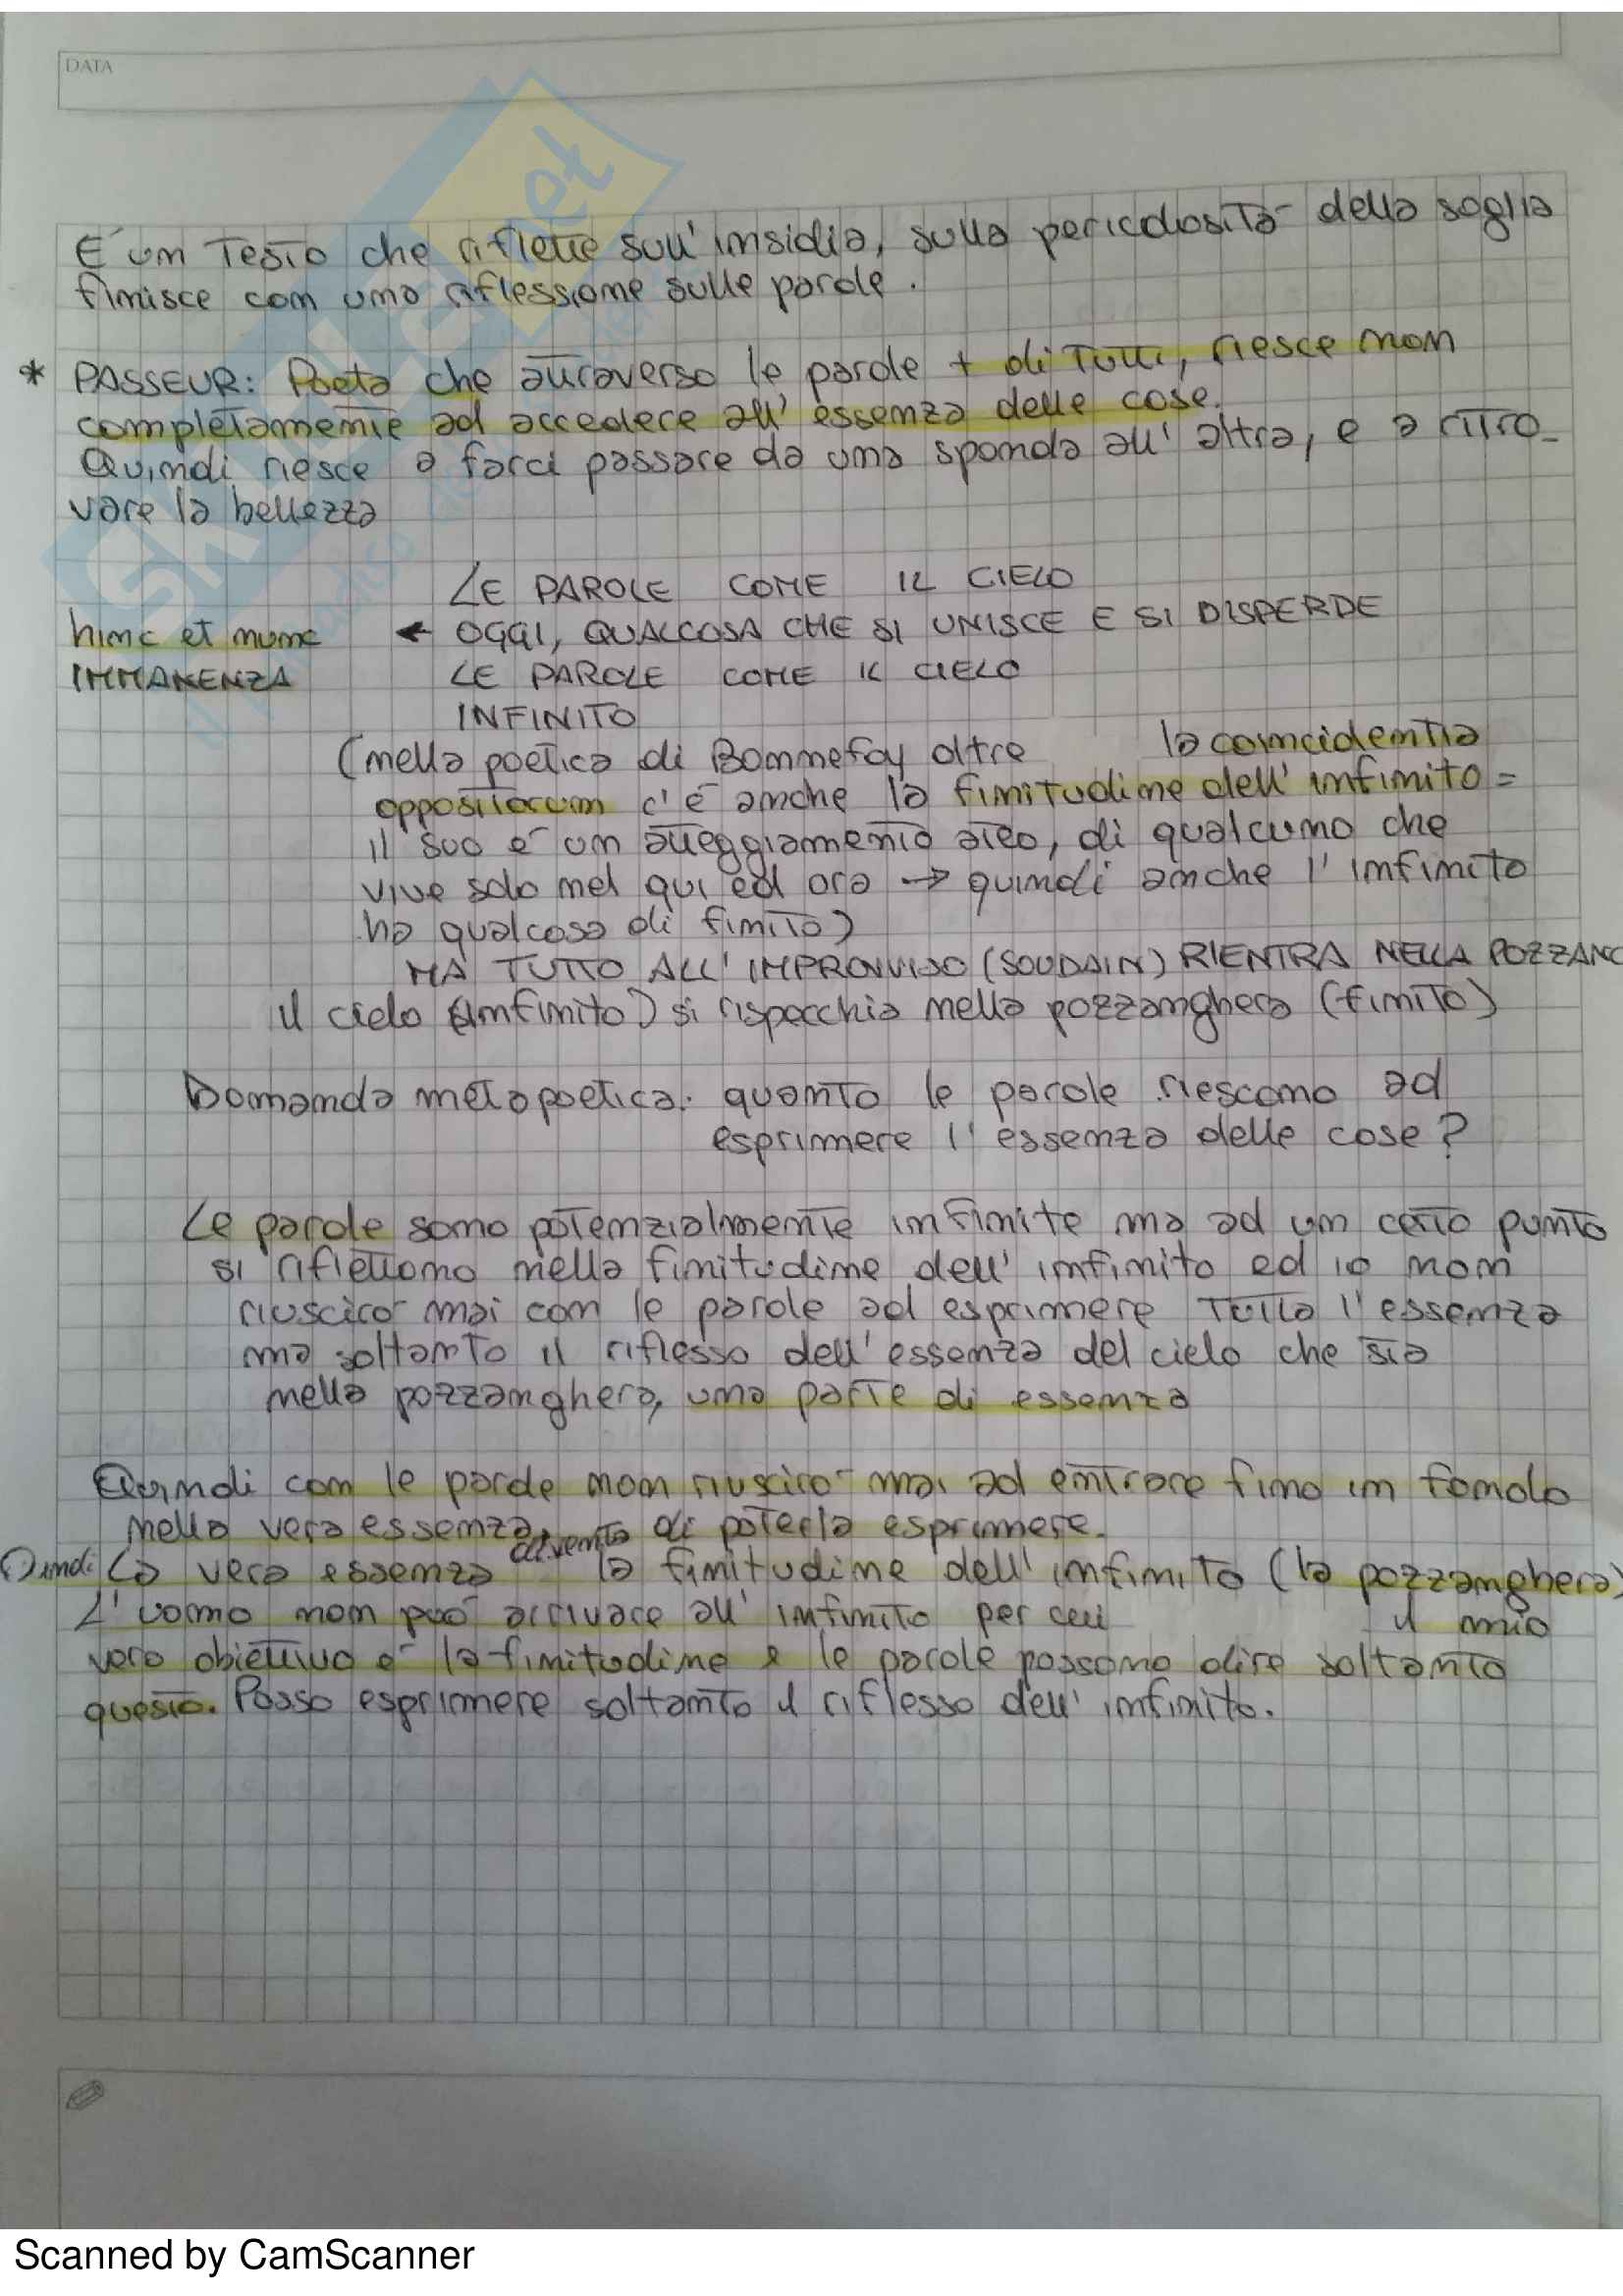 DATA
È un testo che riflette sull'insidia, sulla pericolosità della soglia
finisce con una riflessione sulle parole.
* PASSEUR: Poeta che attraverso le parole + di tutti, riesce non
completamente ad accedere all'essenza delle cose.
Quindi riesce a farci passare da una sponda all'altra, e a ritro-
vare la bellezza
LE PAROLE COME IL CIELO
hinc et nunc ← OGGI, QUALCOSA CHE SI UNISCE E SI DISPERDE
IMMANENZA LE PAROLE COME IL CIELO
INFINITO
(nella poetica di Bonnefoy oltre la coincidentia
oppositorum c'è anche la finitudine dell'infinito =
il suo è un atteggiamento ateo, di qualcuno che
vive solo nel qui ed ora → quindi anche l'infinito
ha qualcosa di finito)
MA TUTTO ALL'IMPROVVISO (SOUDAIN) RIENTRA NELLA POZZANG
il cielo (infinito) si rispecchia nella pozzanghera (finito)
Domanda metapoetica: quanto le parole riescono ad
esprimere l'essenza delle cose?
Le parole sono potenzialmente infinite ma ad un certo punto
si riflettono nella finitudine dell'infinito ed io non
riuscirò mai con le parole ad esprimere tutta l'essenza
ma soltanto il riflesso dell'essenza del cielo che sta
nella pozzanghera, una parte di essenza
Quindi con le parole non riuscirò mai ad entrare fino in fondo
nella vera essenza, di poterla esprimere.
Quindi la vera essenza diventa la finitudine dell'infinito (la pozzanghera)
L'uomo non può arrivare all'infinito per cui il mio
vero obiettivo è la finitudine e le parole possono dire soltanto
questo. Posso esprimere soltanto il riflesso dell'infinito.
Scanned by CamScanner